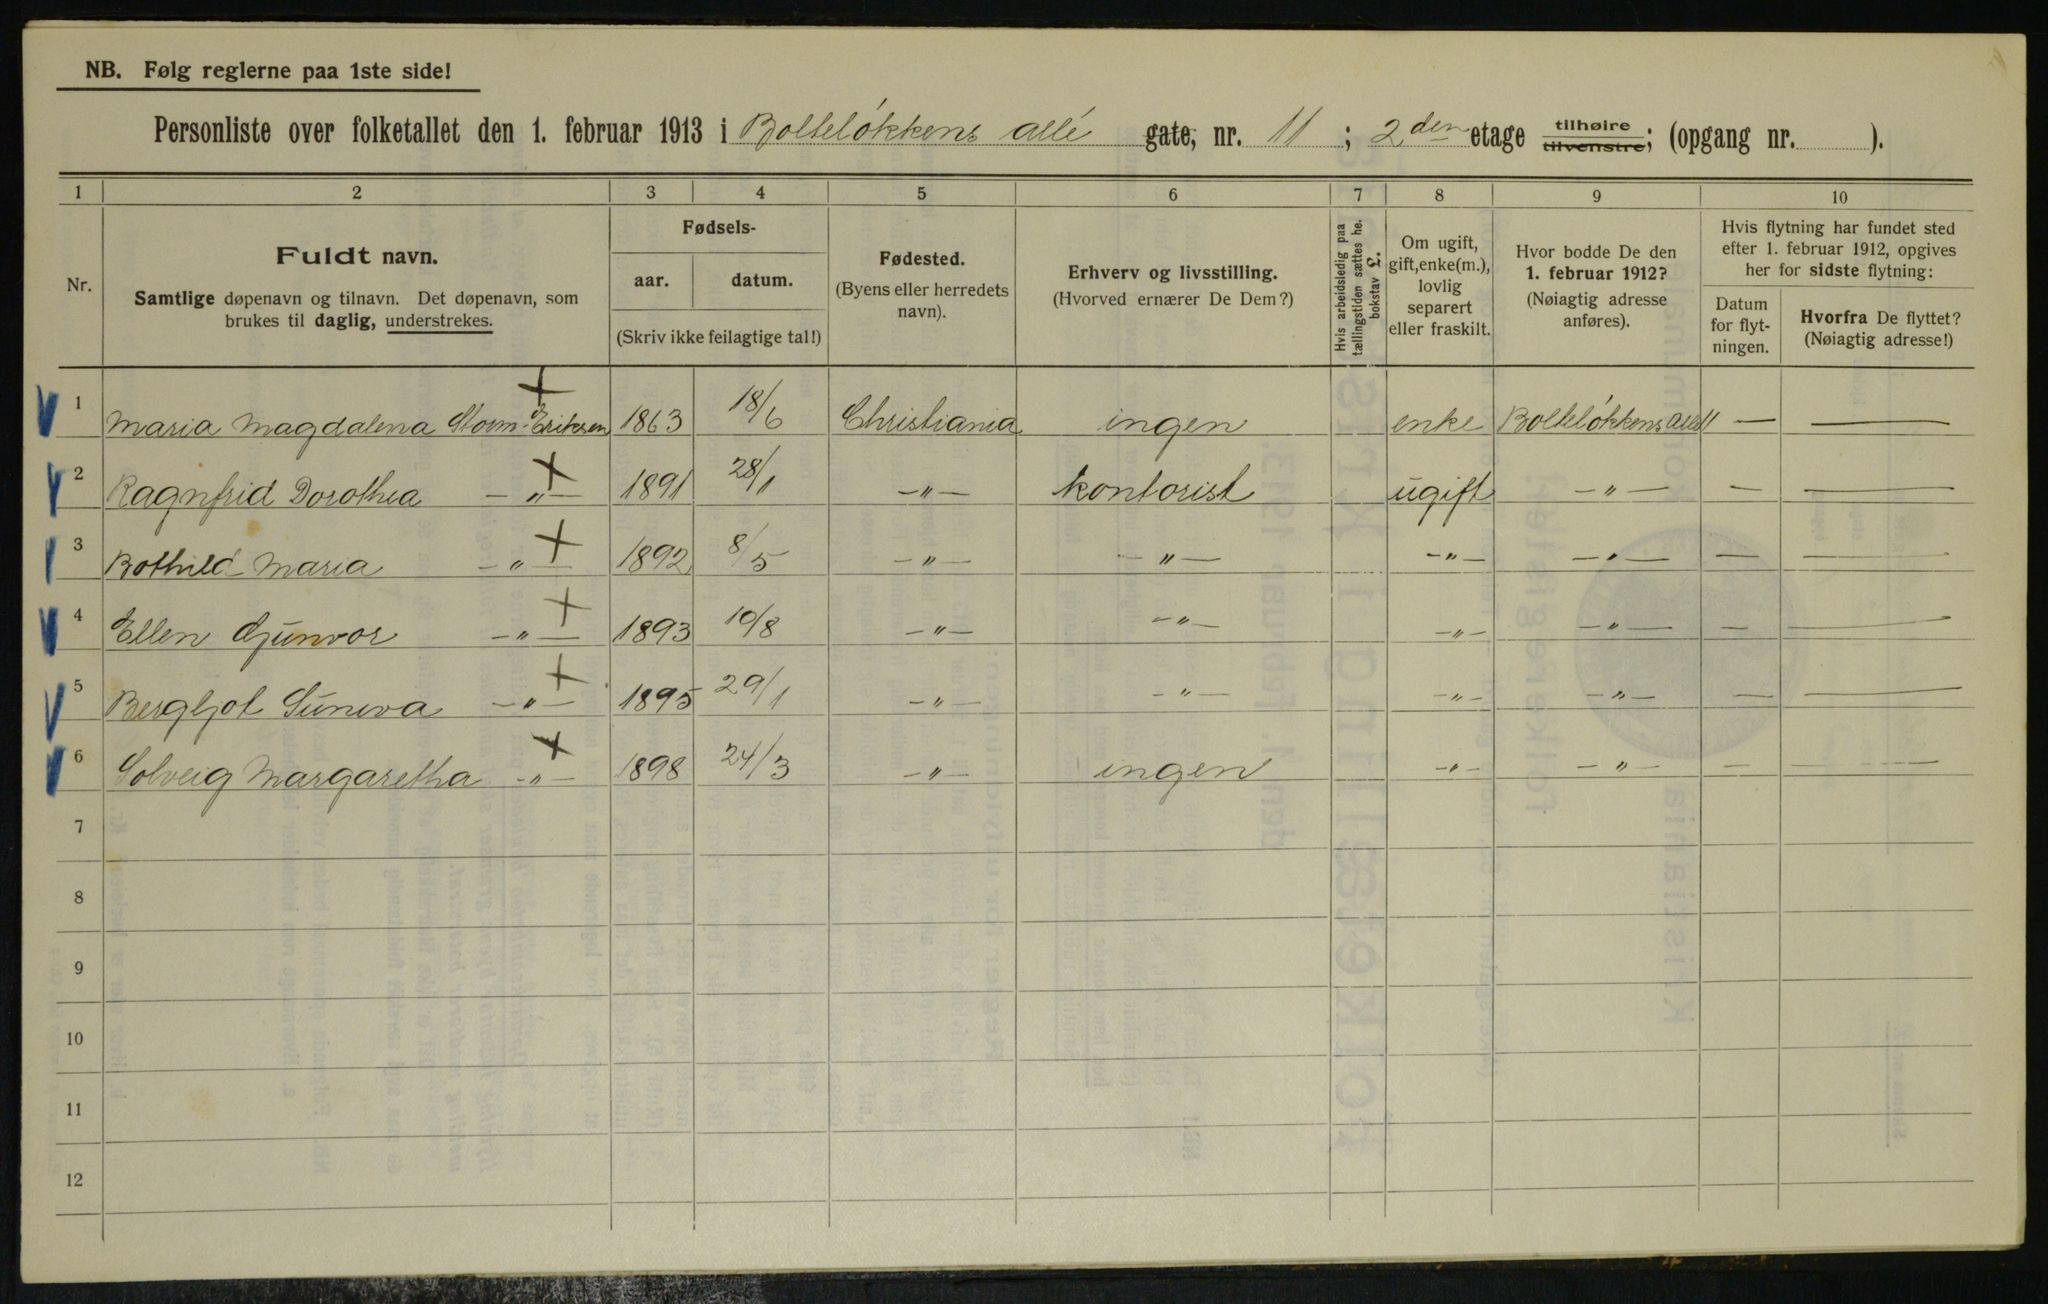 NB. Følg reglerne paa 1ste side!
Personliste over folketallet den 1. februar 1913 i Bolteløkkens allé gate, nr. 11 ; 2den etage tilhøire tilvenstre; (opgang nr. ).
1 2 3 4 5 6 7 8 9 10
Nr.
Fuldt navn.
Samtlige døpenavn og tilnavn. Det døpenavn, som
brukes til daglig, understrekes.
Fødsels-
aar. datum.
(Skriv ikke feilagtige tal!)
Fødested.
(Byens eller herredets
navn).
Erhverv og livsstilling.
(Hvorved ernærer De Dem?)
Hvis arbeidsledig paa
tællingstiden sættes he.
bokstav L.
Om ugift,
gift, enke(m.),
lovlig
separert
eller fraskilt.
Hvor bodde De den
1. februar 1912?
(Nøiagtig adresse
anføres).
Hvis flytning har fundet sted
efter 1. februar 1912, opgives
her for sidste flytning:
Datum
for flyt-
ningen.
Hvorfra De flyttet?
(Nøiagtig adresse!)
1 Maria Magdalena Storm-Eriksen 1863 18/6 Christiania ingen enke Bolteløkkens allé 11 — —
2 Ragnfrid Dorothea —„— 1891 28/1 —„— kontorist ugift —„— — —
3 Bothild Maria —„— 1892 8/5 —„— —„— —„— —„— — —
4 Ellen Gunvor —„— 1893 10/8 —„— —„— —„— —„— — —
5 Bergljot Suniva —„— 1895 29/1 —„— —„— —„— —„— — —
6 Solveig Margaretha —„— 1898 24/3 —„— ingen —„— —„— — —
7
8
9
10
11
12